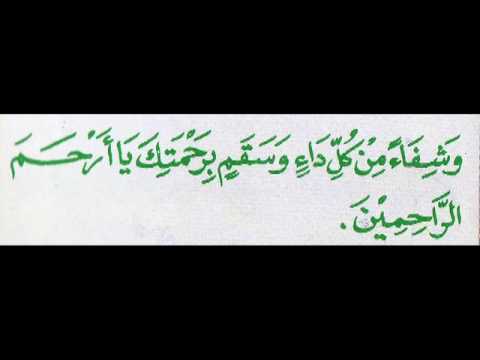 وَشِفَاءً مِنْ كُلِّ دَاءٍ وَسَقَمٍ بِرَحْمَتِكَ يَا أَرْحَمَ
الرَّاحِمِيْنَ .